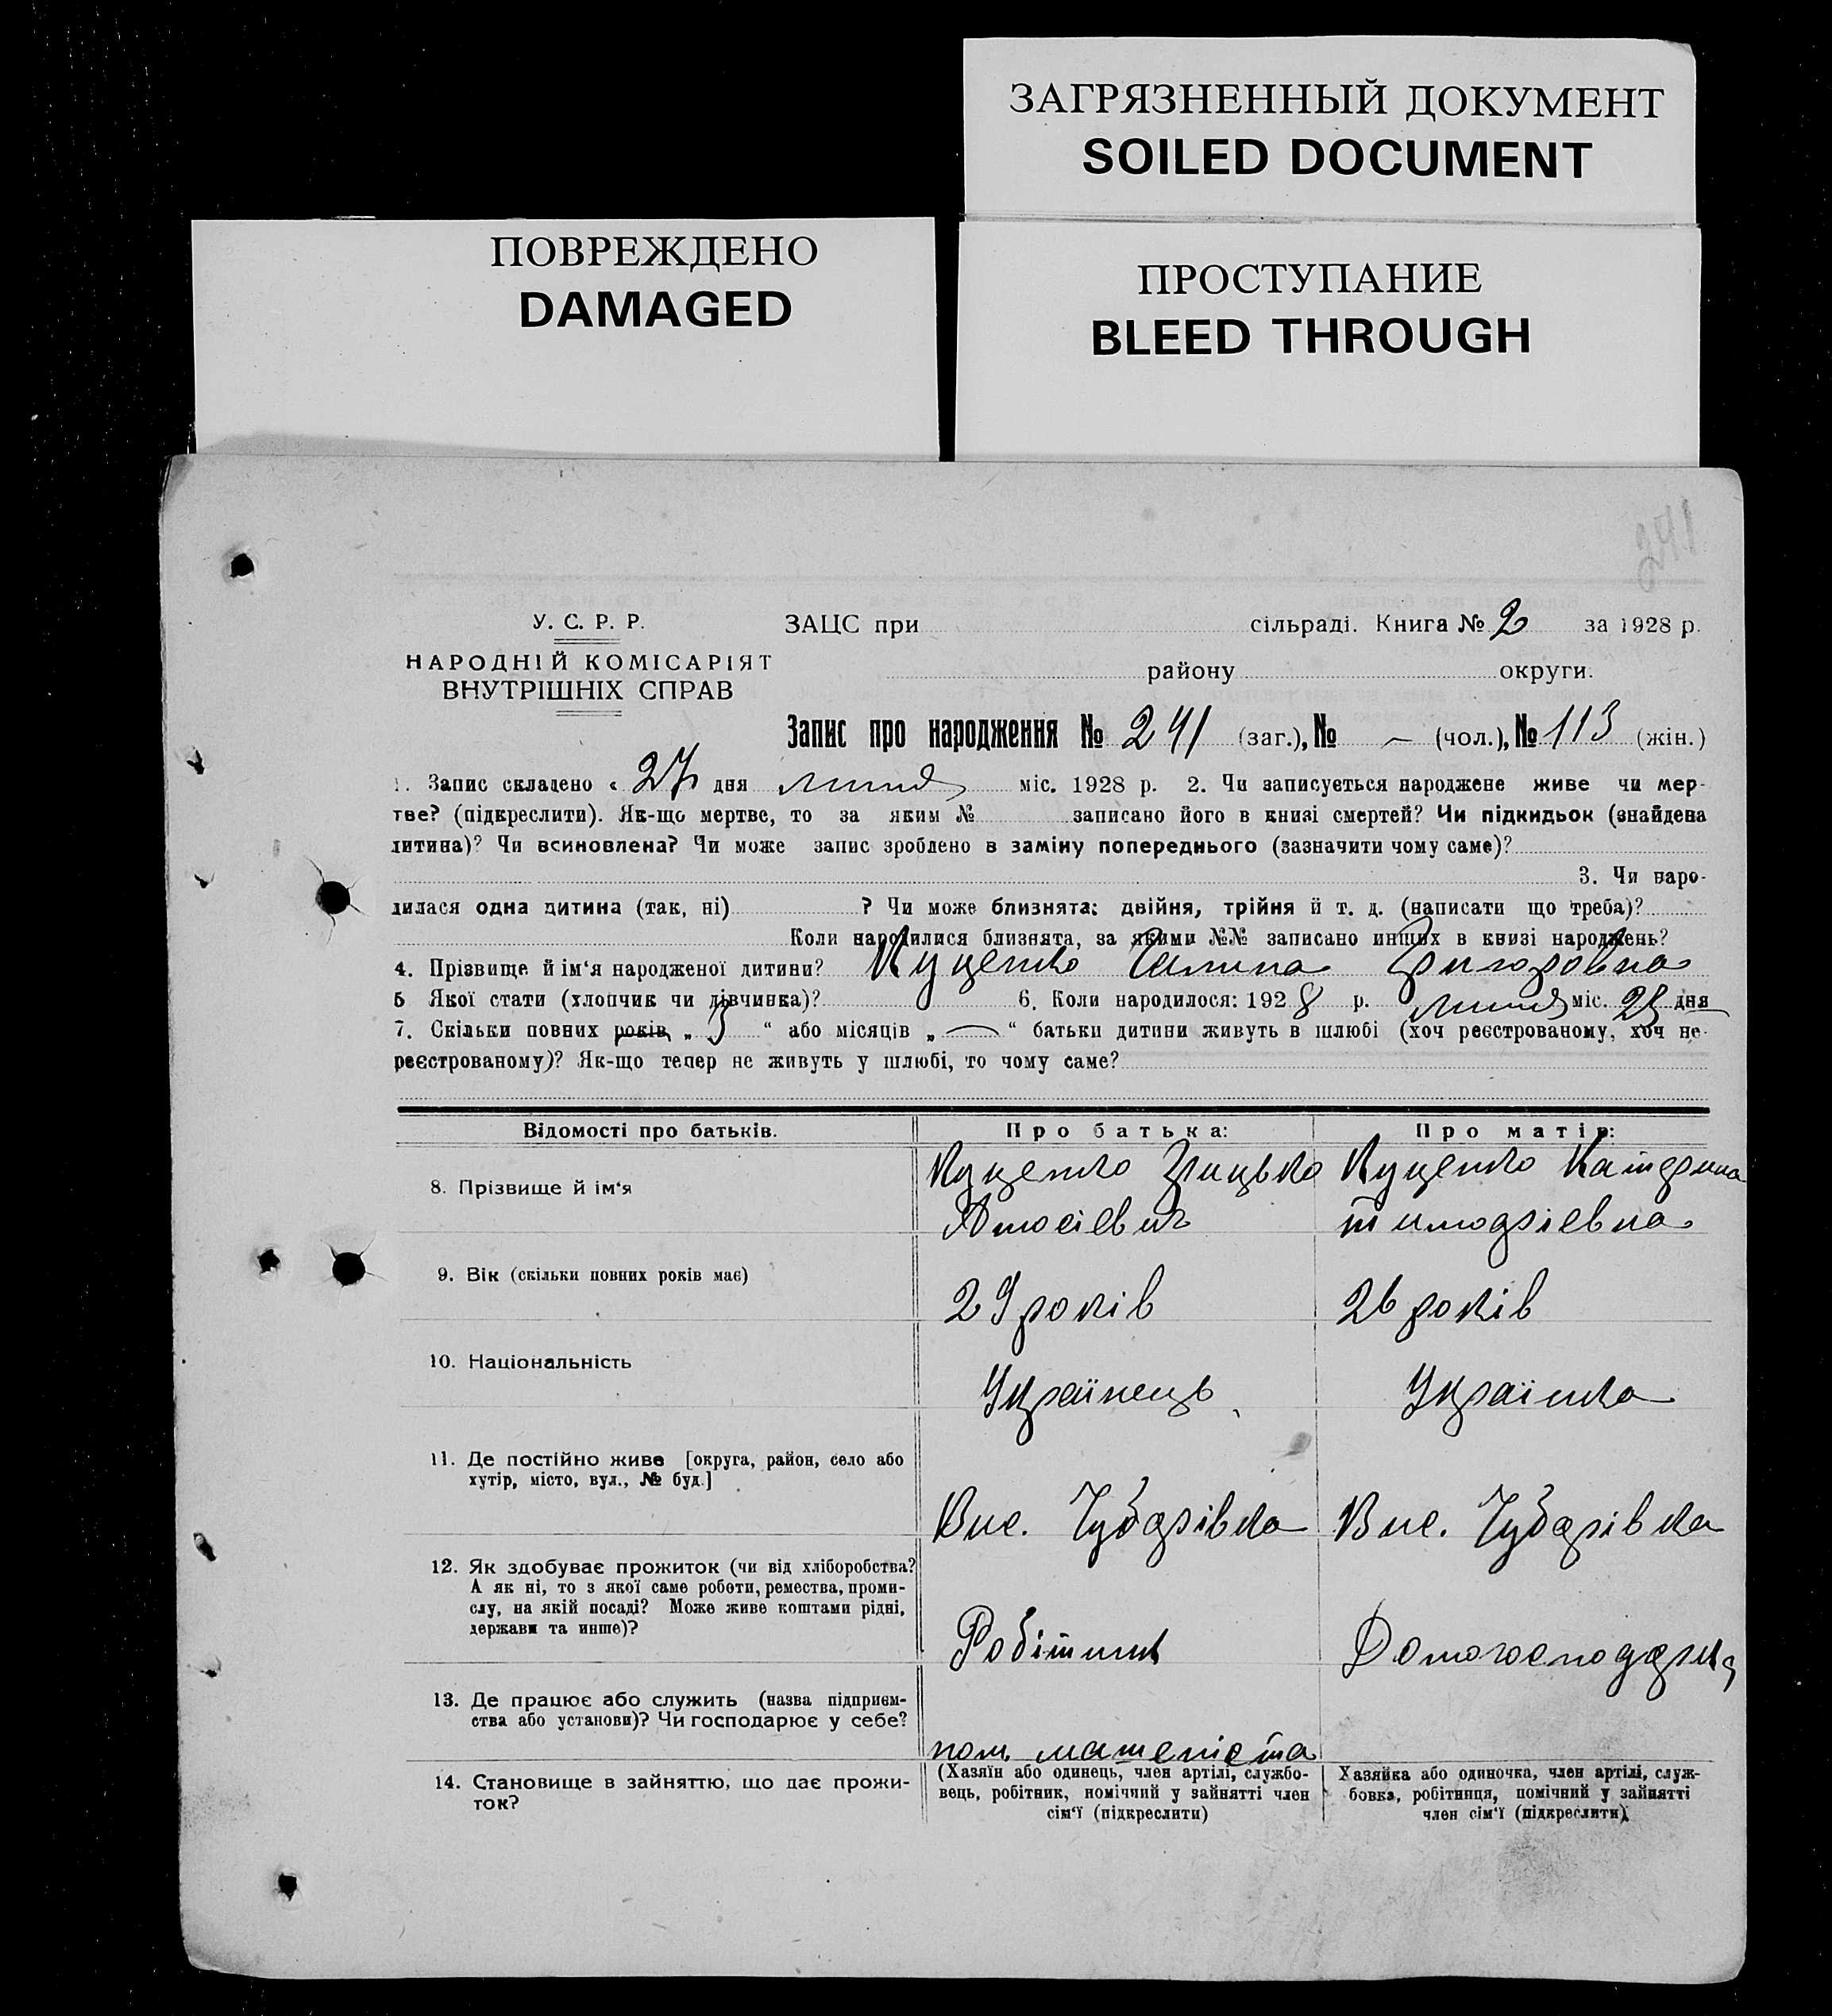 ЗАГРЯЗНЕННЫЙ ДОКУМЕНТ
SOILED DOCUMENT
ПОВРЕЖДЕНО
DAMAGED
ПРОСТУПАНИЕ
BLEED THROUGH
241
У. С. Р. Р.
НАРОДНІЙ КОМІСАРІЯТ
ВНУТРІШНІХ СПРАВ
ЗАЦС при сільраді. Книга № 2 за 1928 р.
району округи.
Запис про народження № 241 (заг.), № — (чол.), № 113 (жін.)
1. Запис складено « 27 дня липня міс. 1928 р. 2. Чи записується народжене живе чи мер-
тве? (підкреслити). Як-що мертве, то за яким № записано його в книзі смертей? Чи підкидьок (знайдена
дитина)? Чи всиновлена? Чи може запис зроблено в заміну попереднього (зазначити чому саме)?
3. Чи наро-
дилася одна дитина (так, ні) ? Чи може близнята: двійня, трійня й т. д. (написати що треба)?
Коли народилися близнята, за якими №№ записано инших в книзі народжень?
4. Прізвище й ім'я народженої дитини? Куценко Галина Григоровна
5 Якої стати (хлопчик чи дівчинка)? 6. Коли народилося: 1928 р. липня міс. 25 дня
7. Скільки повних років „ 3 “ або місяців „ — “ батьки дитини живуть в шлюбі (хоч реєстрованому, хоч не-
реєстрованому)? Як-що тепер не живуть у шлюбі, то чому саме?
Відомості про батьків. Про батька: Про матір:
8. Прізвище й ім'я
Куценко Грицько Куценко Катерина
Амосіевич Тимофіевна
9. Вік (скільки повних років має)
29 років 26 років
10. Національність
Українець Українка
11. Де постійно живе [округа, район, село або
хутір, місто, вул., № буд.]
Вис. Чубарівка Вис. Чубарівка
12. Як здобуває прожиток (чи від хліборобства?
А як ні, то з якої саме роботи, ремества, проми-
слу, на якій посаді? Може живе коштами рідні,
держави та инше)?
Робітник Домогосподариц
13. Де працює або служить (назва підприєм-
ства або установи)? Чи господарює у себе?
пом. машеніста
14. Становище в зайняттю, що дає прожи-
ток?
(Хазяїн або одинець, член артілі, службо-
вець, робітник, помічний у зайнятті член
сім'ї (підкреслити)
Хазяйка або одиночка, член артілі, служ-
бовка, робітниця, помічний у зайнятті
член сім'ї (підкреслити)